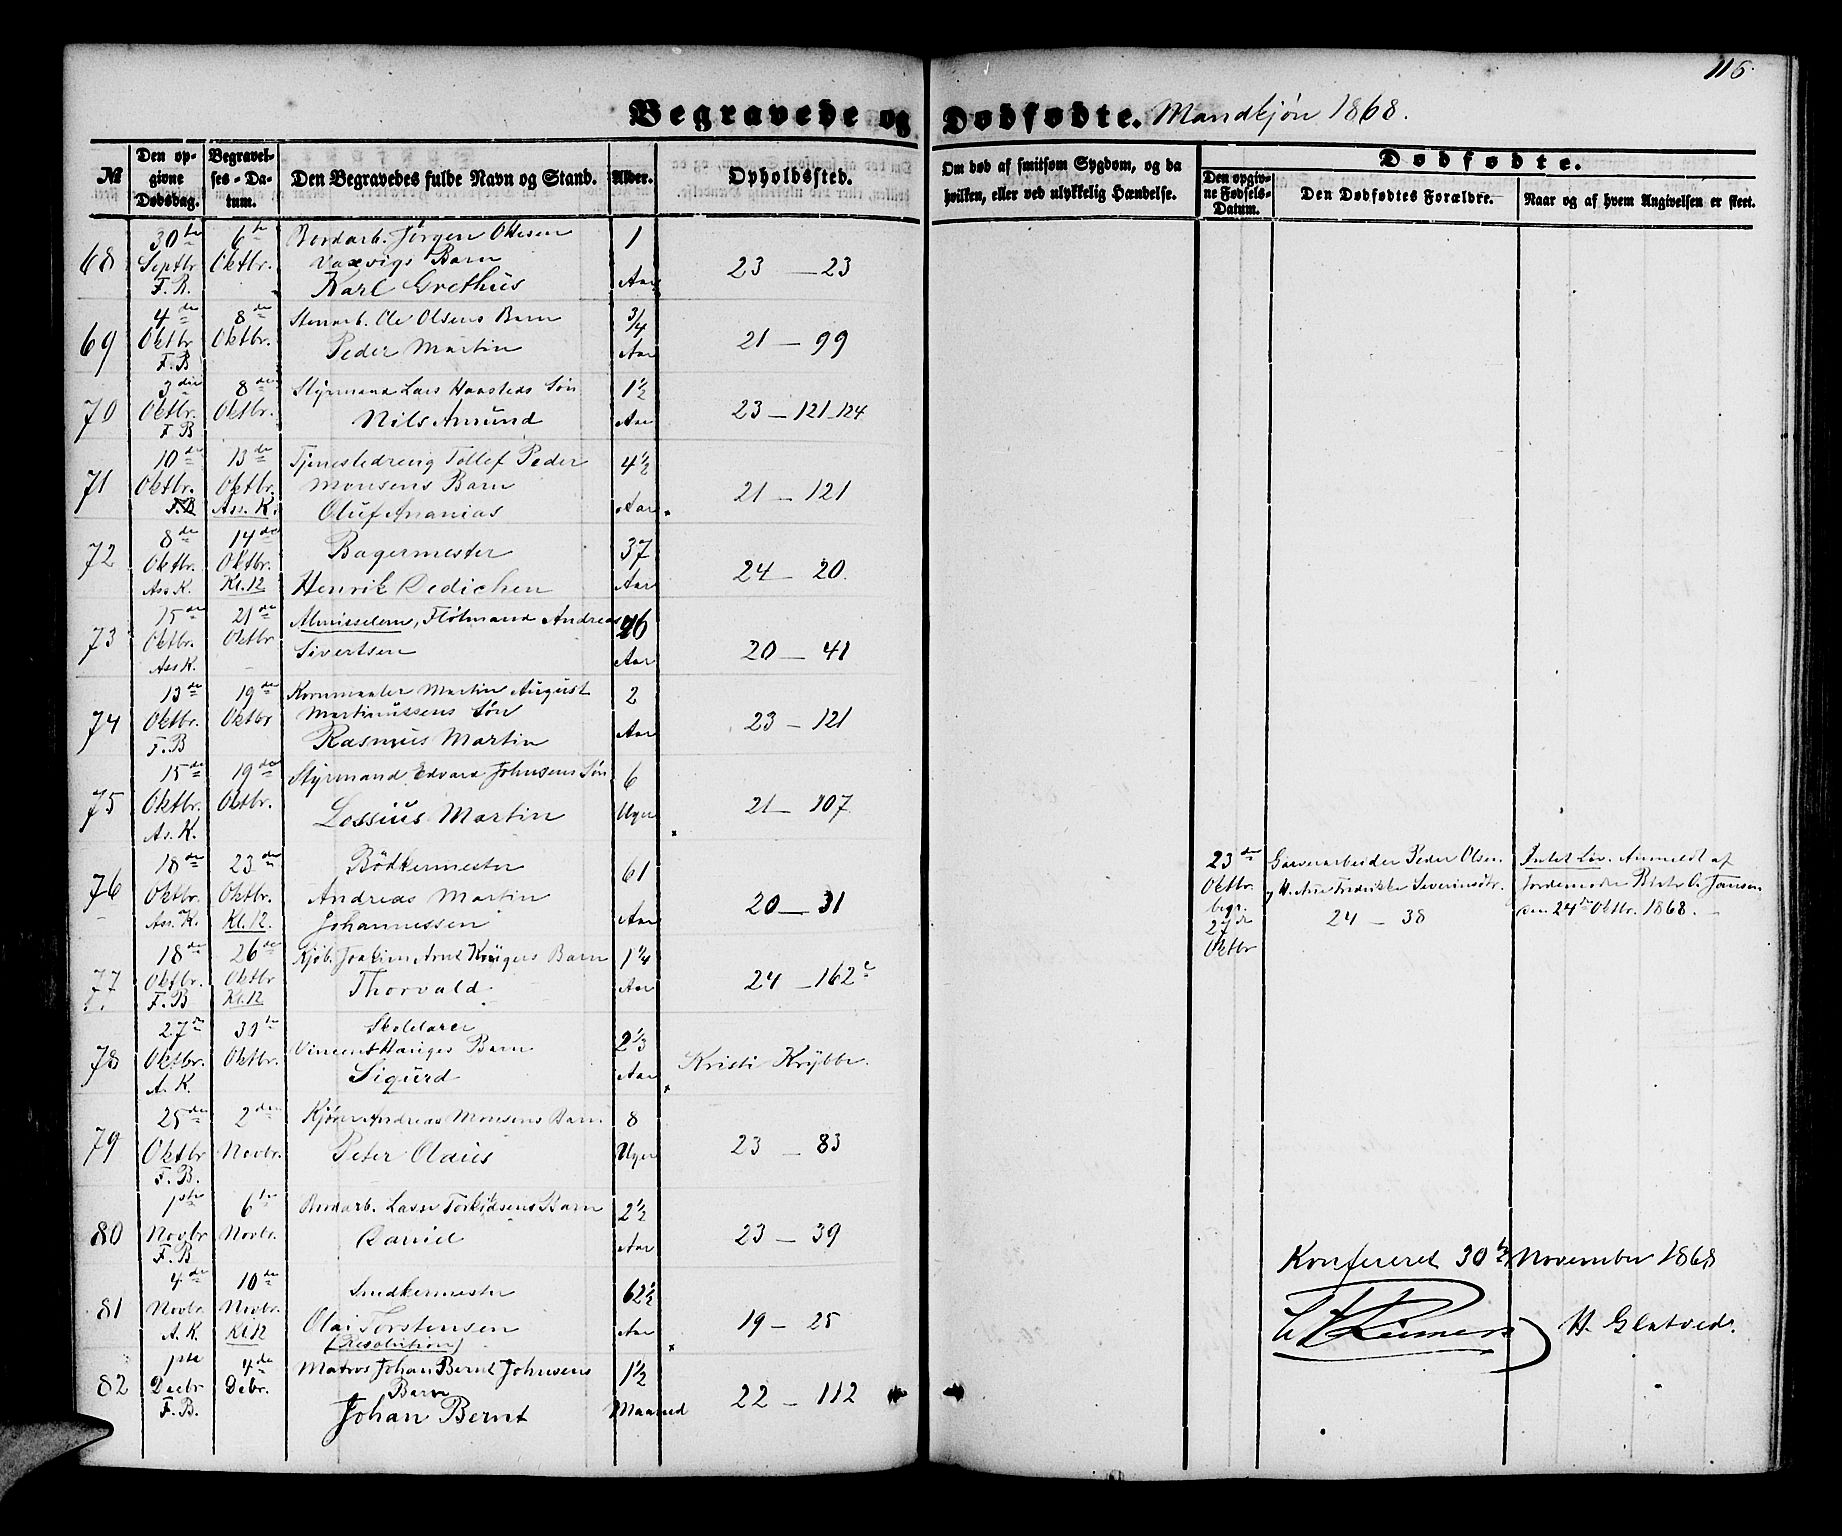 115.
Begravede og Dødfødte. Mandkjøn 1868.
№
Den opgivne Dødsdag.
Begravelses-Datum.
Den Begravedes fulde Navn og Stand.
Alder.
Opholdssted.
Om død af smitsom Sygdom, og da hvilken, eller ved ulykkelig Hændelse.
Dødfødte.
Den opgivne Fødsels-Datum.
Den Dødfødtes Forældre.
Naar og af hvem Angivelsen er skeet.
68 30te Septbr F. B. 6te Oktbr. Bordarb. Jørgen Ottesen
Vaxvigs Barn
Karl Grethus 1 Aar 23 — 23
69 4de Oktbr F. B 8de Oktbr. Stenarb. Ole Olsens Barn
Peder Martin 3/4 Aar 21 — 99
70 3die Oktbr. F B 8de Oktbr. Styrmand Lars Haasteds Søn
Nils Amund 1½ Aar 23 — 121-124
71 10de Oktbr. F.B 13de Oktbr. Ass. K. Tjenestedreng Tollef Peder
Monsens Barn
Oluf Ananias 4½ Aar 21 — 121
72 8de Oktbr. Ass K. 14de Oktbr. Kl. 12 Bagermester
Henrik Dedichen 37 Aar 24 — 20.
73 15de Oktbr. Ass K. 21de Oktbr Almisselem, Fløtmand Andreas
Sivertsen 76 Aar 20 — 41
74 13de Oktbr. F. B 19de Oktbr Kornmaaler Martin August
Martinussens Søn
Rasmus Martin 2 Aar 23 — 121
75 15de Oktbr. As. K. 19de Oktbr. Styrmand Edvard Johnsens Søn
Lossius Martin 6 Uger 21 — 107
76 18de Oktbr. Ass. K. 23de Oktbr. Kl. 12. Bödkermester
Andreas Martin
Johannessen 61 Aar 20 — 31
23de Oktbr. begr. 27de Oktbr
Garverarbeider Peder Olsen
og H. Ane Fredrikke Severinsdtr.
24 — 38
Intet Liv. Anmeldt af
Jordemoder O. Jansen
den 24de Oktbr. 1868.
77 18de Oktbr. F. B 26de Oktbr Kl. 12 Kjøb. Joakim Arnt Krügers Barn
Thorvald. 1¼ Aar 24 — 162c
78 27de Oktbr. A. K. 31te Oktbr. Skolelærer
Vincent Hariges Barn
Sigurd 2⅓ Aar Kristi Krybbe.
79 25de Oktbr F. B. 2den Novbr. Kjører Andreas Monsens Barn.
Peter Olaus 8 Uger 23 — 83
80 1ste Novbr F. B 6te Novbr. Bordarb. Lasse Torkildsens Barn
Daniel 2½ Aar 23 — 39
Konfereret 30te November 1868
81 4de Novbr. A. K. 10de Novbr. Kl. 12 Snedkermester
Olai Torstensen
(Resolution) 62½ Aar 19 — 25
H. Glatved.
82 1ste Decbr F. B. 4de Debr. Matros Johan Bernt Johnsens
Barn
Johan Bernt 1½ Maaned 22 — 112